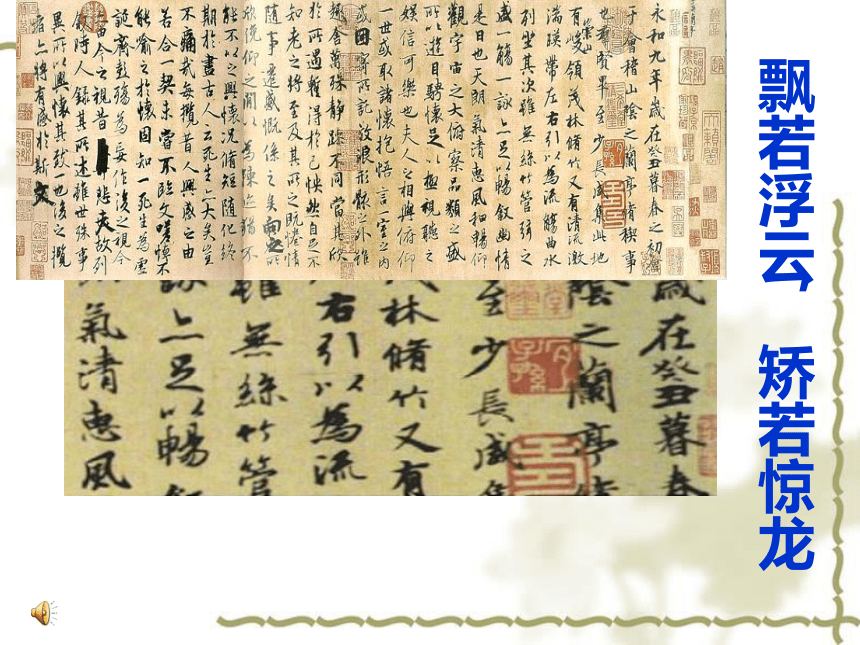 永和九年歲在癸丑暮春之初會
于會稽山陰之蘭亭脩稧事
也羣賢畢至少長咸集此地
有崇山峻領茂林脩竹又有清流激
湍暎帶左右引以為流觴曲水
列坐其次雖無絲竹管弦之
盛一觴一詠亦足以暢敘幽情
是日也天朗氣清惠風和暢仰
觀宇宙之大俯察品類之盛
所以遊目騁懷足以極視聽之
娛信可樂也夫人之相與俯仰
一世或取諸懷抱悟言一室之內
或因寄所託放浪形骸之外雖
趣舍萬殊靜躁不同當其欣
於所遇蹔得於己怏然自足不
知老之將至及其所之既惓情
隨事遷感慨係之矣向之所
欣俛仰之閒以為陳迹猶不
能不以之興懷況脩短隨化終
期於盡古人云死生亦大矣豈
不痛哉每攬昔人興感之由
若合一契未嘗不臨文嗟悼不
能喻之於懷固知一死生為虛
誕齊彭殤為妄作後之視今
亦由今之視昔悲夫故列
敘時人錄其所述雖世殊事
異所以興懷其致一也後之攬
者亦將有感於斯文
歲在癸丑暮春
陰之蘭亭脩
至少長咸集
茂林脩竹又有
右引以為流
雖無絲竹管
詠亦足以暢敘
氣清惠風
飘若浮云 矫若惊龙